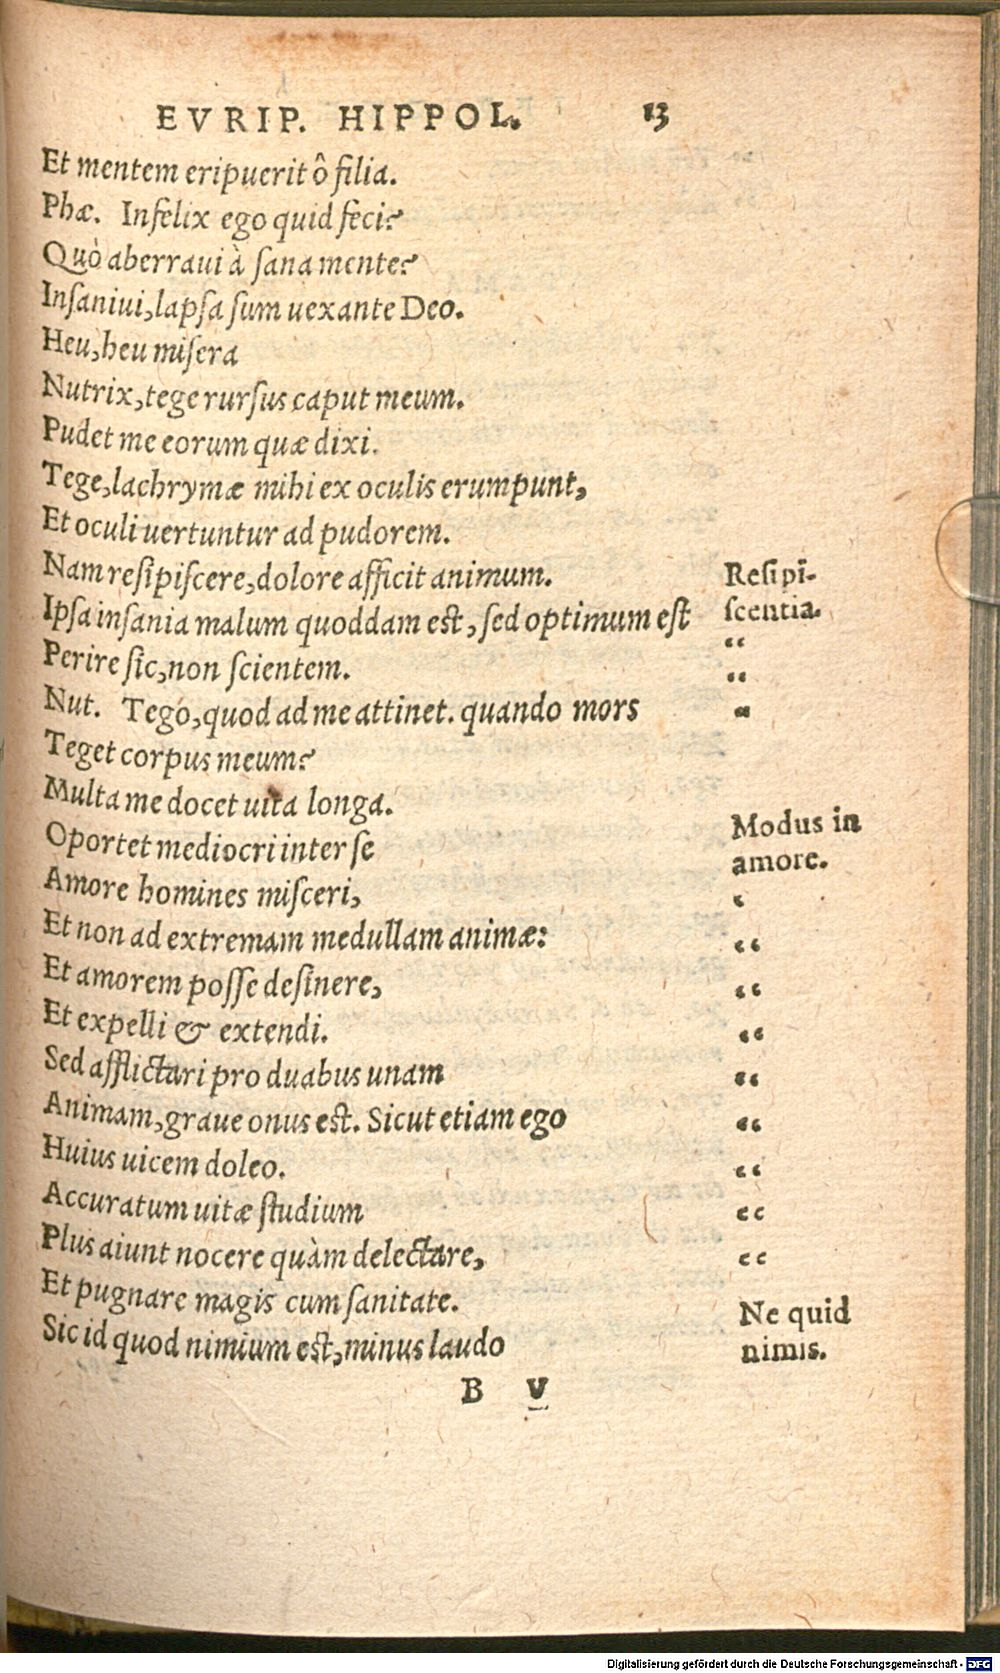 EVRIP. HIPPOL. 13
Et mentem eripuerit ô filia.
Phæ. Infelix ego quid feci?
Quò aberraui à ſana mente?
Inſaniui, lapſa ſum uexante Deo.
Heu, heu miſera
Nutrix, tege rurſus caput meum.
Pudet me eorum quæ dixi.
Tege, lachrymæ mihi ex oculis erumpunt,
Et oculi uertuntur ad pudorem.
Nam reſipiſcere, dolore afficit animum.
Ipſa inſania malum quoddam eſt, ſed optimum eſt
Perire ſic, non ſcientem.
Nut. Tego, quod ad me attinet. quando mors
Teget corpus meum?
Multa me docet uita longa.
Oportet mediocri inter ſe
Amore homines miſceri,
Et non ad extremam medullam animæ:
Et amorem poſſe deſinere,
Et expelli & extendi.
Sed afflictari pro duabus unam
Animam, graue onus eſt. Sicut etiam ego
Huius uicem doleo.
Accuratum uitæ ſtudium
Plus aiunt nocere quàm delectare,
Et pugnare magis cum ſanitate.
Sic id quod nimium eſt, minus laudo
B V
Reſipi-
ſcentia.
“
“
“
Modus in
amore.
‘
“
“
“
“
“
“
“
“
Ne quid
nimis.
Digitalisierung gefördert durch die Deutsche Forschungsgemeinschaft - DFG